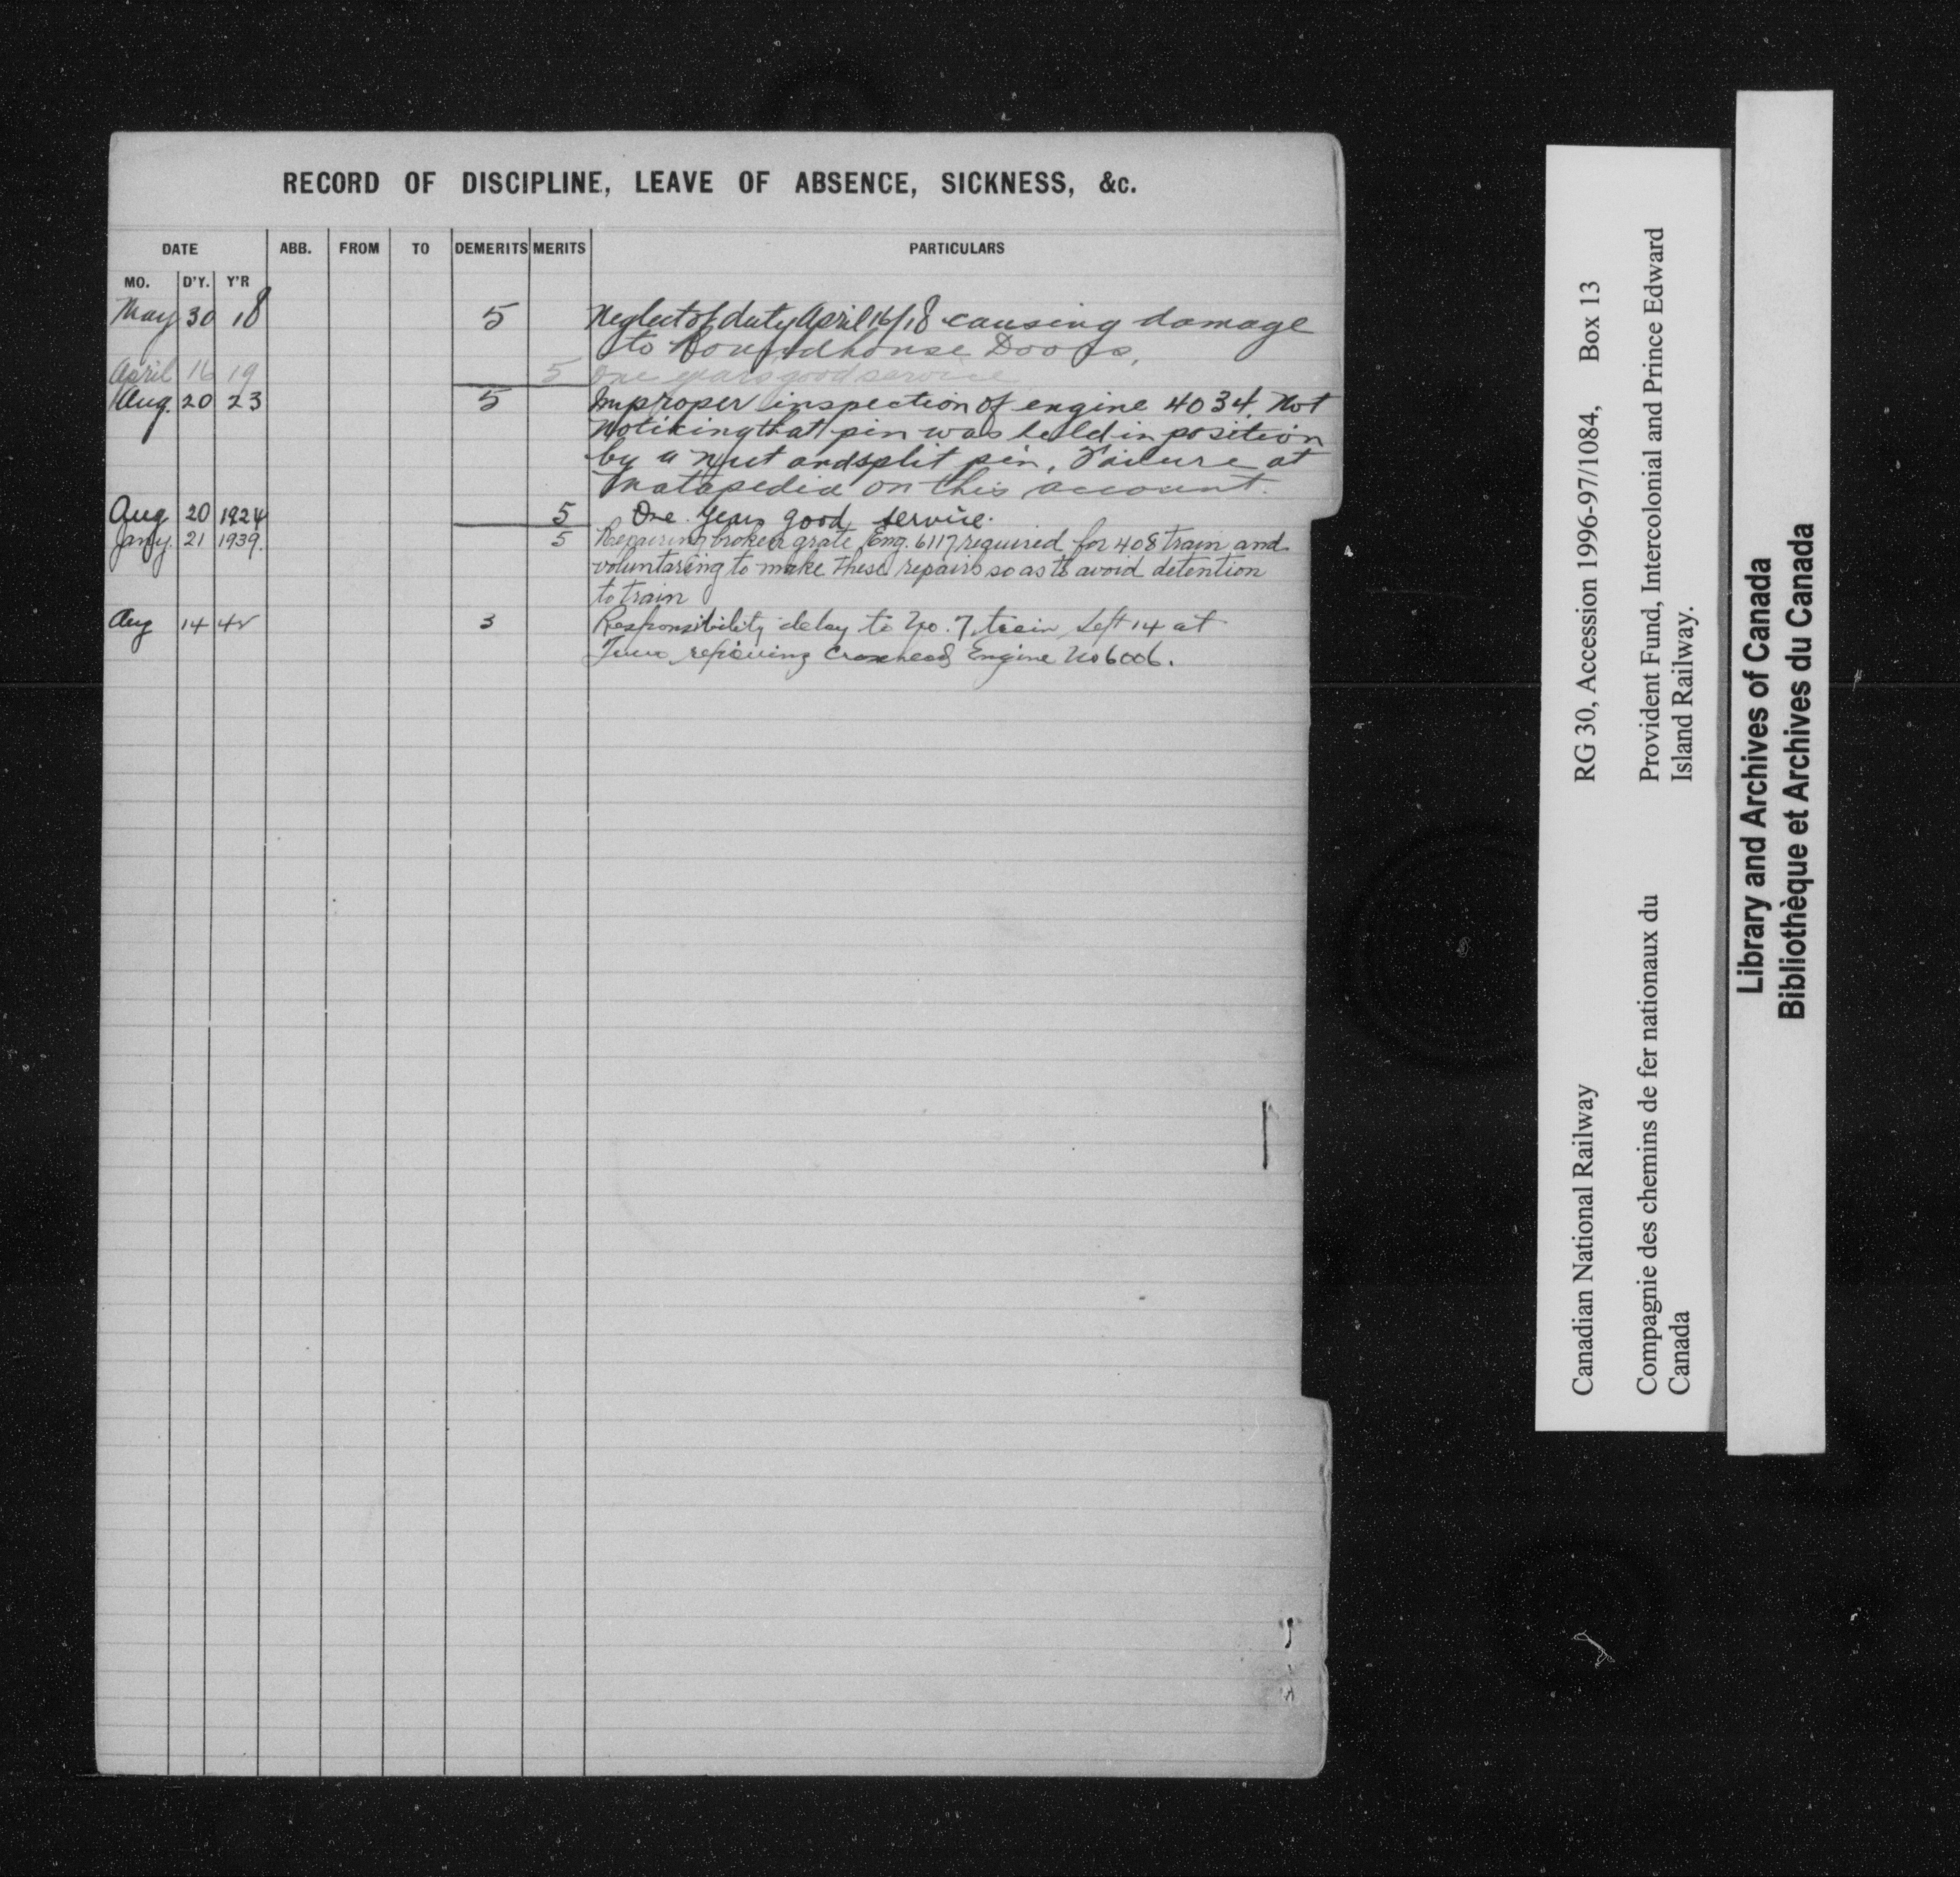 RECORD OF DISCIPLINE, LEAVE OF ABSENCE, SICKNESS, &c.
DATE ABB. FROM TO DEMERITS MERITS PARTICULARS
MO. D'Y. Y'R
May 30 18 5 Neglect of duty April 16/18 causing damage
to Roundhouse Doors.
April 16 19 5 One years good service
Aug. 20 23 5 Improper inspection of engine 4034. Not
noticing that pin was held in position
by a nut and split pin. Failure at
Matapedia on this account.
Aug 20 1924 5 One Years good service.
Jany. 21 1939. 5 Repairing broken grate Eng. 6117 required for 408 train and
voluntaring to make these repairs so as to avoid detention
to train
Aug 14 42 3 Responsibility delay to No. 7 train 14 at
repairing Crosshead Engine No 6006.
Canadian National Railway RG 30, Accession 1996-97/1084, Box 13
Compagnie des chemins de fer nationaux du Provident Fund, Intercolonial and Prince Edward
Canada Island Railway.
Library and Archives of Canada
Bibliothèque et Archives du Canada